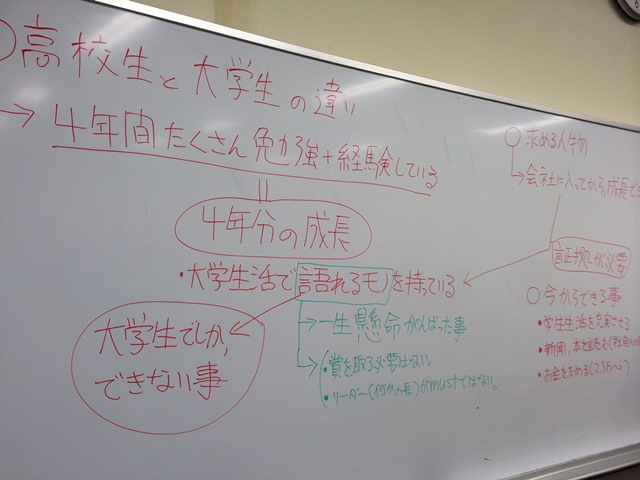 ○高校生と大学生の違い
→4年間たくさん勉強+経験している
=
4年分の成長
・大学生活で語れるモノを持っている
大学生でしか、
できない事
→一生懸命がんばった事
→・賞を取る必要はない。
・リーダー(何かの長)がmustではない。
○求める人物
→会社に入ってから、成長でき
証拠が必要
○今からできる事
・学生生活を充実させる
・新聞、本を読む
・お金をためる